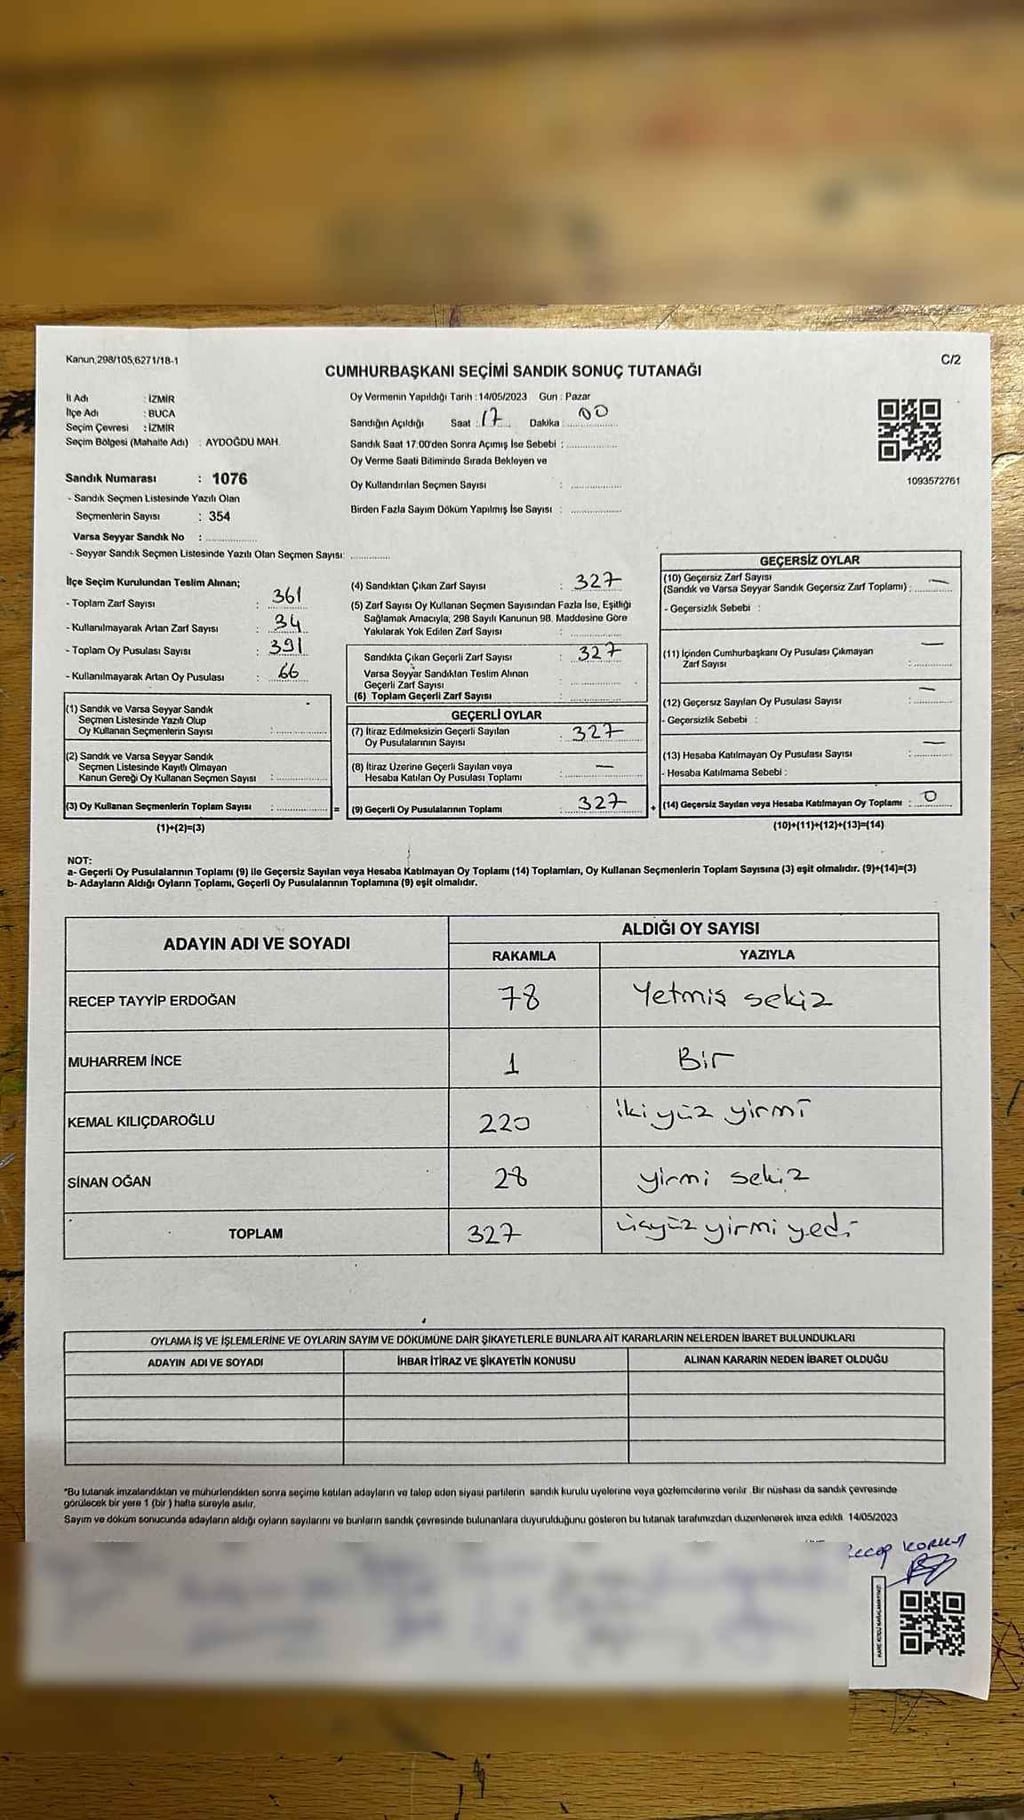 Kanun,298/105,6271/18-1
C/2
CUMHURBAŞKANI SEÇİMİ SANDIK SONUÇ TUTANAĞI
İl Adı : İZMİR
İlçe Adı : BUCA
Seçim Çevresi : İZMİR
Seçim Bölgesi (Mahalle Adı) : AYDOĞDU MAH.
Sandık Numarası : 1076
- Sandık Seçmen Listesinde Yazılı Olan
Seçmenlerin Sayısı : 354
Varsa Seyyar Sandık No :
- Seyyar Sandık Seçmen Listesinde Yazılı Olan Seçmen Sayısı:
Oy Vermenin Yapıldığı Tarih : 14/05/2023 Gün : Pazar
Sandığın Açıldığı Saat : 17 Dakika : 00
Sandık Saat 17:00'den Sonra Açımış İse Sebebi :
Oy Verme Saati Bitiminde Sırada Bekleyen ve
Oy Kullandırılan Seçmen Sayısı :
Birden Fazla Sayım Döküm Yapılmış İse Sayısı :
1093572761
İlçe Seçim Kurulundan Teslim Alınan;
- Toplam Zarf Sayısı : 361
- Kullanılmayarak Artan Zarf Sayısı : 34
- Toplam Oy Pusulası Sayısı : 391
- Kullanılmayarak Artan Oy Pusulası : 66
(1) Sandık ve Varsa Seyyar Sandık
Seçmen Listesinde Yazılı Olup
Oy Kullanan Seçmenlerin Sayısı :
(2) Sandık ve Varsa Seyyar Sandık
Seçmen Listesinde Kayıtlı Olmayan
Kanun Gereği Oy Kullanan Seçmen Sayısı :
(3) Oy Kullanan Seçmenlerin Toplam Sayısı : =
(1)+(2)=(3)
(4) Sandıktan Çıkan Zarf Sayısı : 327
(5) Zarf Sayısı Oy Kullanan Seçmen Sayısından Fazla İse, Eşitliği
Sağlamak Amacıyla, 298 Sayılı Kanunun 98. Maddesine Göre
Yakılarak Yok Edilen Zarf Sayısı :
Sandıkta Çıkan Geçerli Zarf Sayısı : 327
Varsa Seyyar Sandıktan Teslim Alınan
Geçerli Zarf Sayısı :
(6) Toplam Geçerli Zarf Sayısı :
GEÇERLİ OYLAR
(7) İtiraz Edilmeksizin Geçerli Sayılan
Oy Pusulalarının Sayısı : 327
(8) İtiraz Üzerine Geçerli Sayılan veya
Hesaba Katılan Oy Pusulası Toplamı : —
(9) Geçerli Oy Pusulalarının Toplamı : 327 +
GEÇERSİZ OYLAR
(10) Geçersiz Zarf Sayısı
(Sandık ve Varsa Seyyar Sandık Geçersiz Zarf Toplamı) : —
- Geçersizlik Sebebi :
(11) İçinden Cumhurbaşkanı Oy Pusulası Çıkmayan
Zarf Sayısı : —
(12) Geçersiz Sayılan Oy Pusulası Sayısı : —
- Geçersizlik Sebebi :
(13) Hesaba Katılmayan Oy Pusulası Sayısı : —
- Hesaba Katılmama Sebebi :
(14) Geçersiz Sayılan veya Hesaba Katılmayan Oy Toplamı : 0
(10)+(11)+(12)+(13)=(14)
NOT:
a- Geçerli Oy Pusulalarının Toplamı (9) ile Geçersiz Sayılan veya Hesaba Katılmayan Oy Toplamı (14) Toplamları, Oy Kullanan Seçmenlerin Toplam Sayısına (3) eşit olmalıdır. (9)+(14)=(3)
b- Adayların Aldığı Oyların Toplamı, Geçerli Oy Pusulalarının Toplamına (9) eşit olmalıdır.
ADAYIN ADI VE SOYADI
ALDIĞI OY SAYISI
RAKAMLA YAZIYLA
RECEP TAYYİP ERDOĞAN 78 Yetmiş sekiz
MUHARREM İNCE 1 Bir
KEMAL KILIÇDAROĞLU 220 iki yüz yirmi
SİNAN OĞAN 28 yirmi sekiz
TOPLAM 327 üçyüz yirmi yedi
OYLAMA İŞ VE İŞLEMLERİNE VE OYLARIN SAYIM VE DÖKÜMÜNE DAİR ŞİKAYETLERLE BUNLARA AİT KARARLARIN NELERDEN İBARET BULUNDUKLARI
ADAYIN ADI VE SOYADI İHBAR İTİRAZ VE ŞİKAYETİN KONUSU ALINAN KARARIN NEDEN İBARET OLDUĞU
"Bu tutanak imzalandıktan ve mühürlendikten sonra seçime katılan adayların ve talep eden siyasi partilerin sandık kurulu üyelerine veya gözlemcilerine verilir. Bir nüshası da sandık çevresinde
görülecek bir yere 1 (bir) hafta süreyle asılır.
Sayım ve döküm sonucunda adayların aldığı oyların sayılarını ve bunların sandık çevresinde bulunanlara duyurulduğunu gösteren bu tutanak tarafımızdan düzenlenerek imza edildi. 14/05/2023